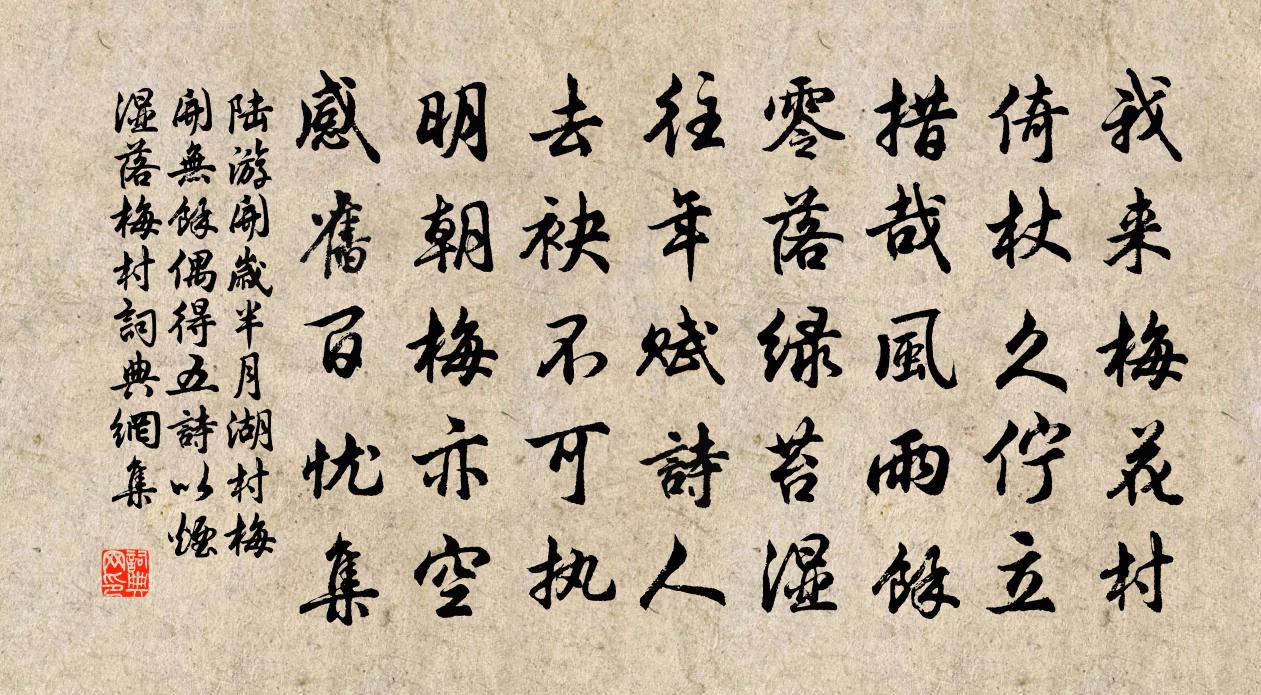 我来梅花村
倚杖久佇立
措哉風雨餘
零落緑苔湿
往年赋詩人
去袂不可执
明朝梅亦空
感舊百忧集
陸游開歲半月湖村梅
開無餘偶得五詩以煙
湿落梅村詞典網集
詞典网印